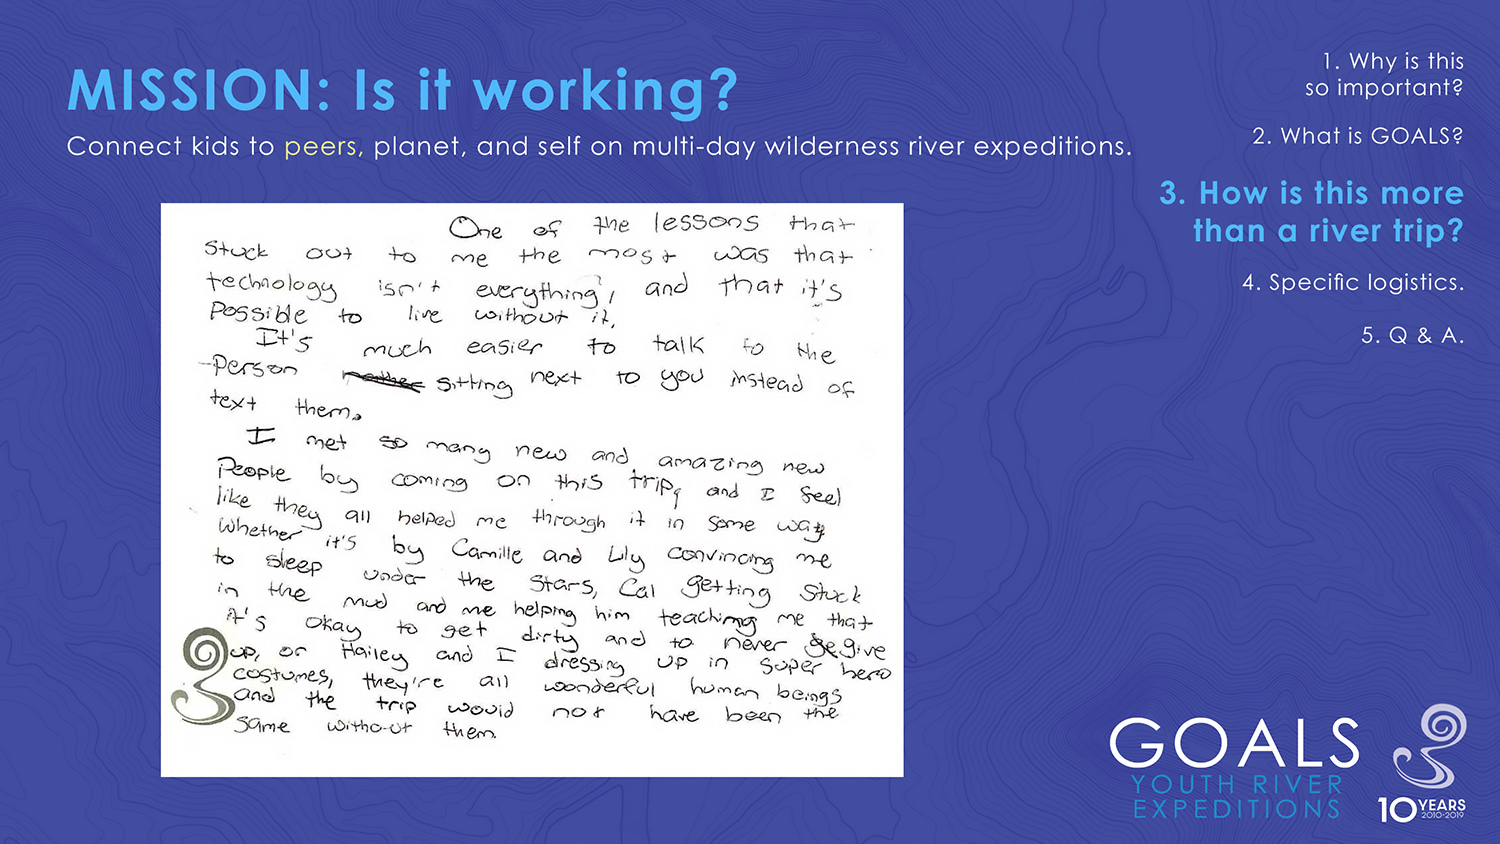 MISSION: Is it working?
Connect kids to peers, planet, and self on multi-day wilderness river expeditions.
1. Why is this
so important?
2. What is GOALS?
3. How is this more
than a river trip?
4. Specific logistics.
5. Q & A.
One of the lessons that
stuck out to me the most was that
technology isn't everything, and that it's
possible to live without it.
It's much easier to talk to the
person sitting next to you instead of
text them.
I met so many new and amazing new
people by coming on this trip, and I feel
like they all helped me through it in some way
whether it's by Camille and Lily convincing me
to sleep under the stars, Cal getting stuck
in the mud and me helping him teaching me that
it's okay to get dirty and to never give
up, or Hailey and I dressing up in super hero
costumes, they're all wonderful human beings
and the trip would not have been the
same without them.
GOALS
YOUTH RIVER
EXPEDITIONS
10 YEARS
2010-2019